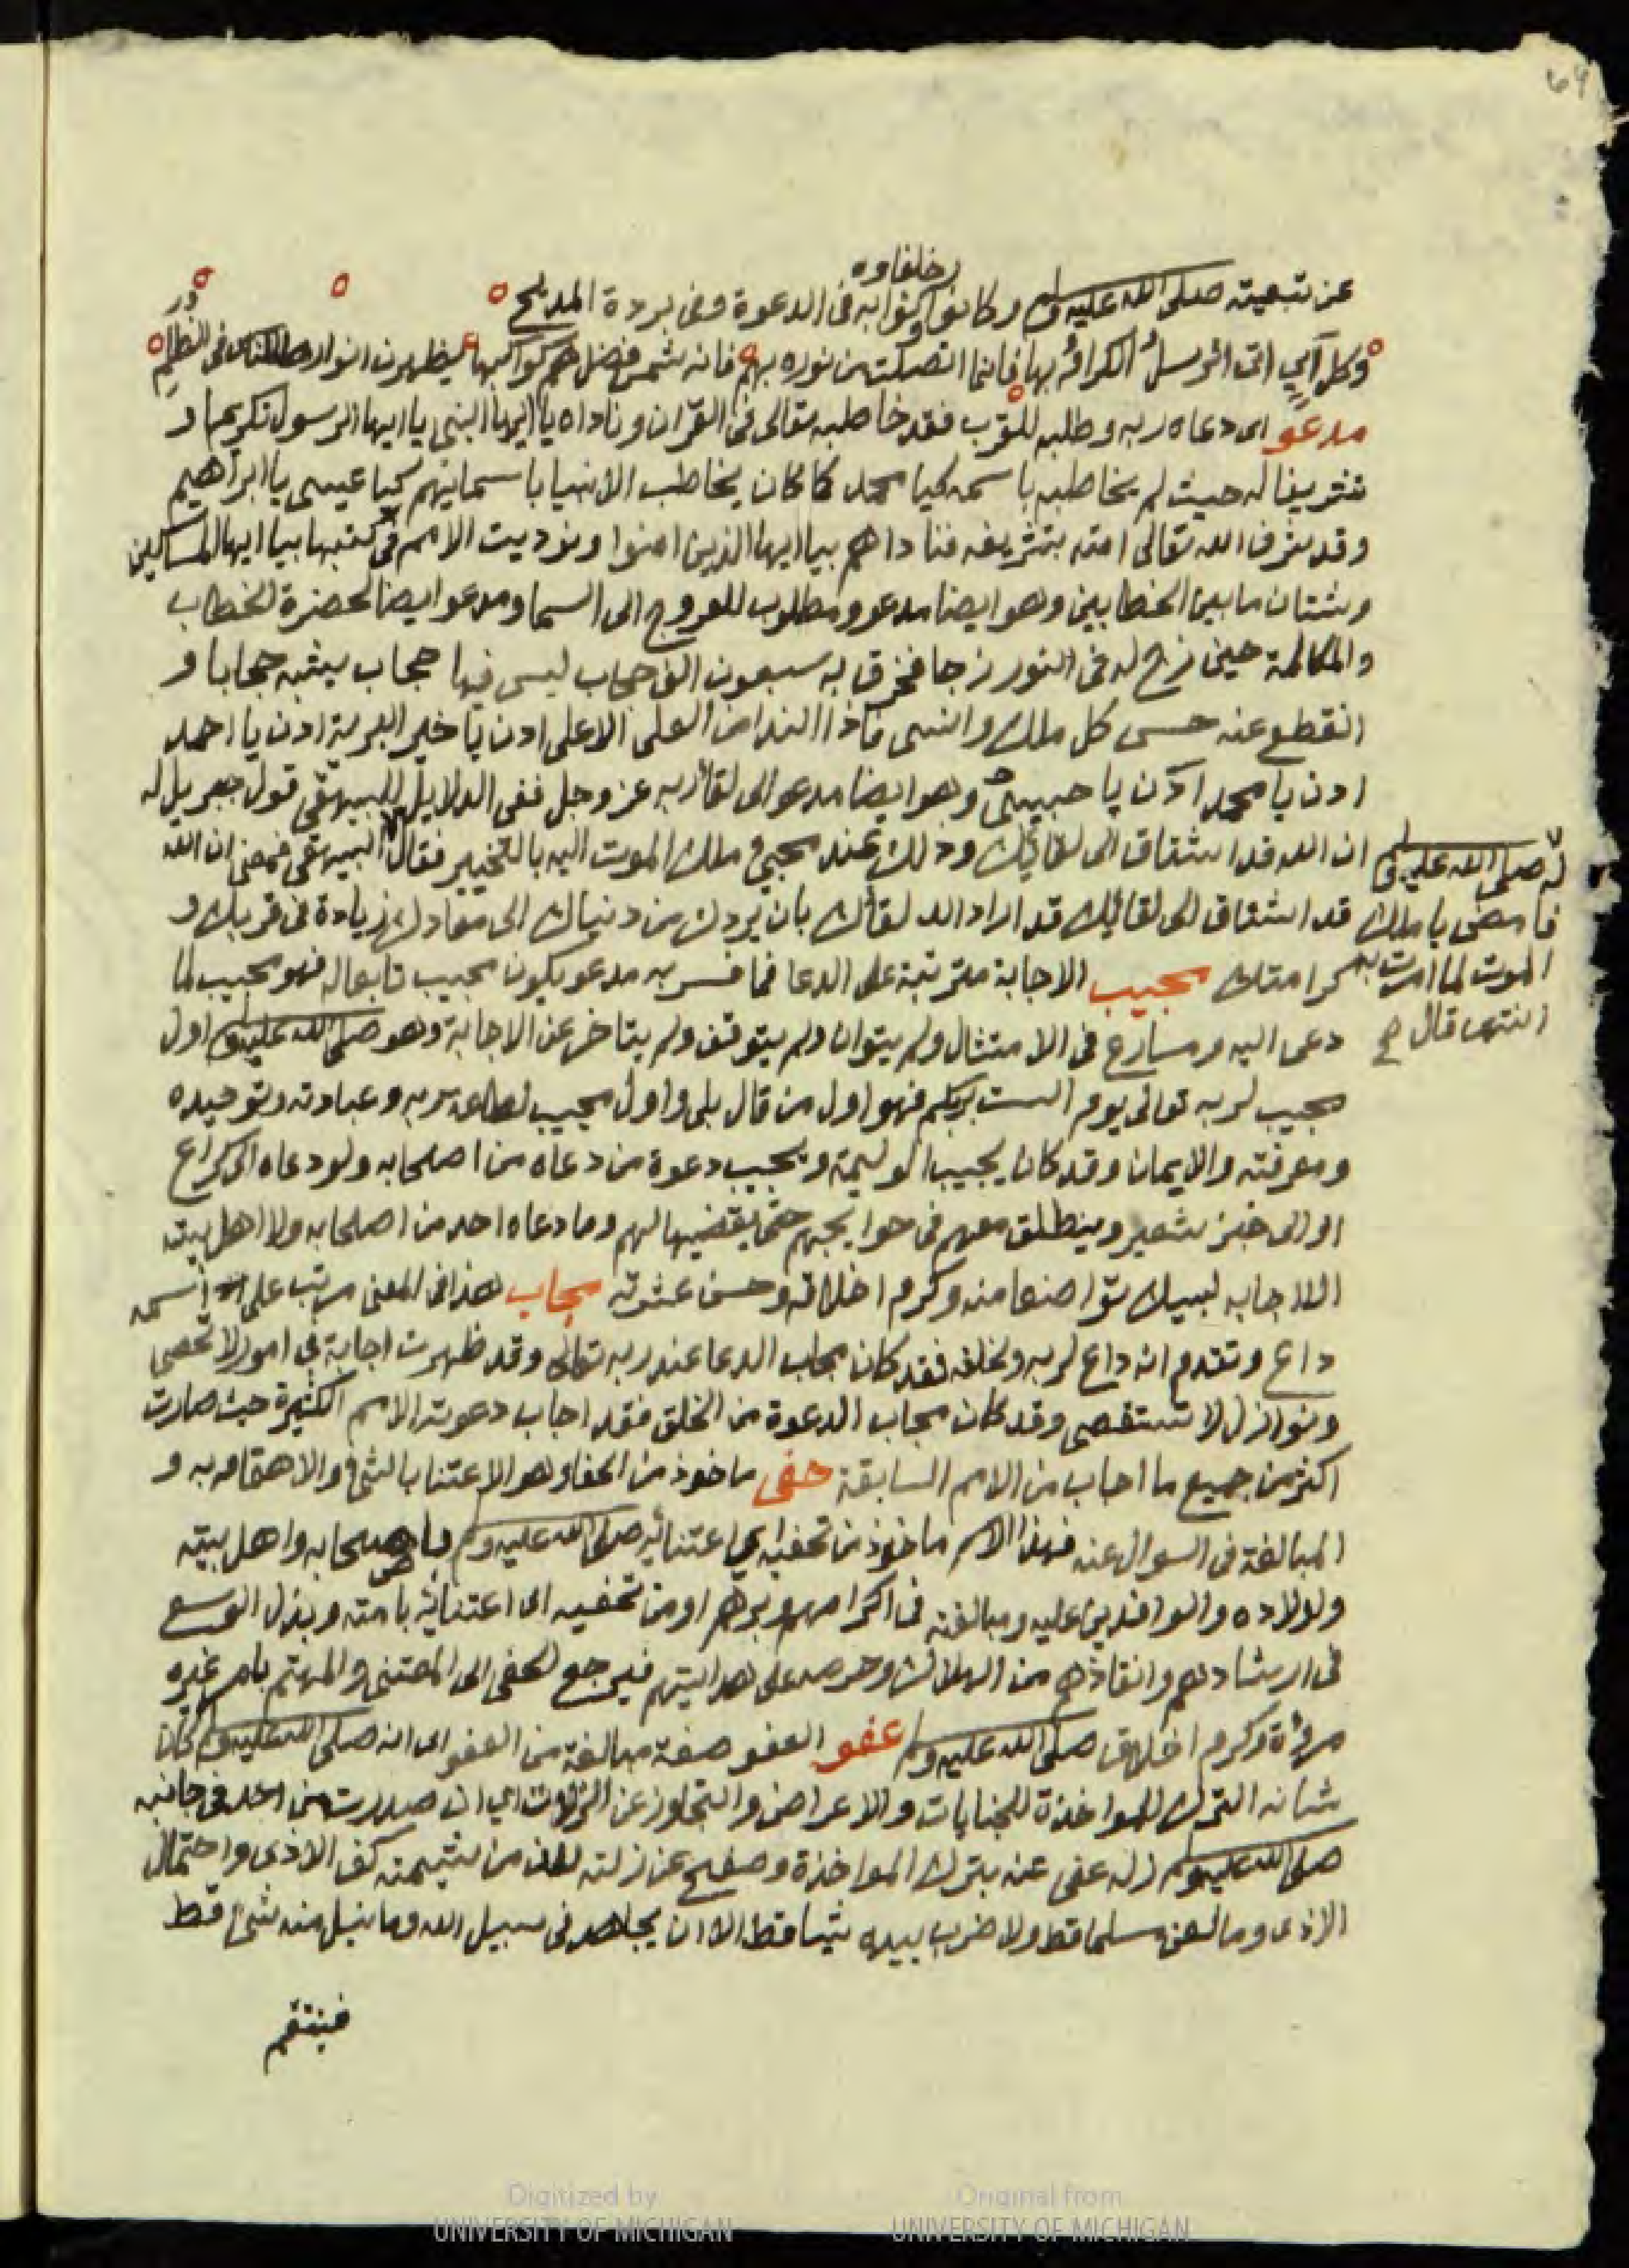 69
خلفاوه
عن تبعيته صلى الله عليه وسلم وكانوا نوابه في الدعوة وفي بردة المديح
وكل آي اتى الرسل الكرام بها فانما اتصلت من نوره بهم فانه شمس فضل هم كواكبها يظهرن انوارها للناس في الظلم
مدعو اى دعاه ربه وطلبه للقرب فقد خاطبه تعالى في القرآن وناداه يا ايها النبي يا ايها الرسول تكريما و
تشريفا له حيث لم يخاطبه باسمه كيا محمد كما كان يخاطب الانبيا باسمائهم كيا عيسى يا ابراهيم
وقد شرف الله تعالى امته بتشريفه فناداهم بيا ايها الذين امنوا ونوديت الامم في كتبها بيا ايها المساكين
وشتان ما بين الخطابين وهو ايضا مدعو ومطلوب للعروج الى السما ومدعو ايضا لحضرة الخطاب
والمكالمة حين زج له في النور زجا فخرق به سبعون الف حجاب ليس فيها حجاب يشبه حجابا و
انقطع عنه حس كل ملك وانسى فاذا الندا من العلى الاعلى ادن يا خير البرية ادن يا احمد
ادن يا محمد ادن يا حبيبى وهو ايضا مدعو الى لقا ربه عز وجل ففى الدلايل للبيهقى قول جبريل له
ان الله قد اشتاق الى لقائك وذلك عند مجيئ ملك الموت اليه بالتخيير فقال البيهقى فمعنى ان الله
قد اشتاق الى لقائك قد اراد الله لقائك بان يردك من دنياك الى معادك زيادة في قربك و
كرامتك مجيب الاجابة مترتبة على الدعا فما فسر به مدعو يكون مجيب تابعا له فهو مجيب لما
دعى اليه ومسارع في الامتثال ولم يتوان ولم يتوقف ولم يتاخر عن الاجابة وهو صلى الله عليه وسلم اول
مجيب لربه تعالى يوم الست بربكم فهو اول من قال بلى واول مجيب لطاعة ربه وعبادته وتوحيده
ومعرفته والايمان وقد كان يجيب الوليمة ويجيب دعوة من دعاه من اصحابه ولو دعاه الى كراع
او الى خبز شعير وينطلق معهم في حوايجهم حتى يقضيها لهم وما دعاه احد من اصحابه ولا اهل بيته
الا اجابه لبيك تواضعا منه وكرم اخلاقه وحسن عشرته مجاب هذا في المعنى مرتب على اسمه
داع وتقدم انه داع لربه ولخلقه فقد كان مجاب الدعا عند ربه تعالى وقد ظهرت اجابته في امور لا تحصى
ونوازل لا تستقصى وقد كان مجاب الدعوة من الخلق فقد اجاب دعوته الامم الكثيرة حيث صارت
اكثر من جميع ما اجاب من الامم السابقة حفى ماخوذ من الحفا وهو الاعتنا بالشئ والاهتمام به و
المبالغة في السوال عنه فهذا الاسم ماخوذ من تحفيه اي اعتنائه صلى الله عليه وسلم باصحابه واهل بيته
واولاده والوافدين عليه ومبالغته في اكرامهم وبرهم او من تحفيه اى اعتنائه بامته وبذل الوسع
في ارشادهم وانقاذهم من الهلاك وحرصه على هدايتهم فيرجع الحفى الى المعتنى والمهتم بامر غيره
مروءة وكرم اخلاق صلى الله عليه وسلم عفو العفو صفة مبالغة من العفو اى انه صلى الله عليه وسلم كان
شانه الترك للمواخذة للجنايات والاعراض والتجاوز عن الزلات اي ان صدرت من احد في جانبه
صلى الله عليه وسلم زلة عفى عنه بترك المواخذة وصفح عن زلته من شيمته كف الاذى واحتمال
الاذى وما لعن مسلما قط ولا ضرب بيده شيا قط الا ان يجاهد في سبيل الله وما نيل منه شئ قط
فينتقم
له صلى الله عليه وسلم
فامضى يا ملك
الموت لما امرت به
انتهى قال صح